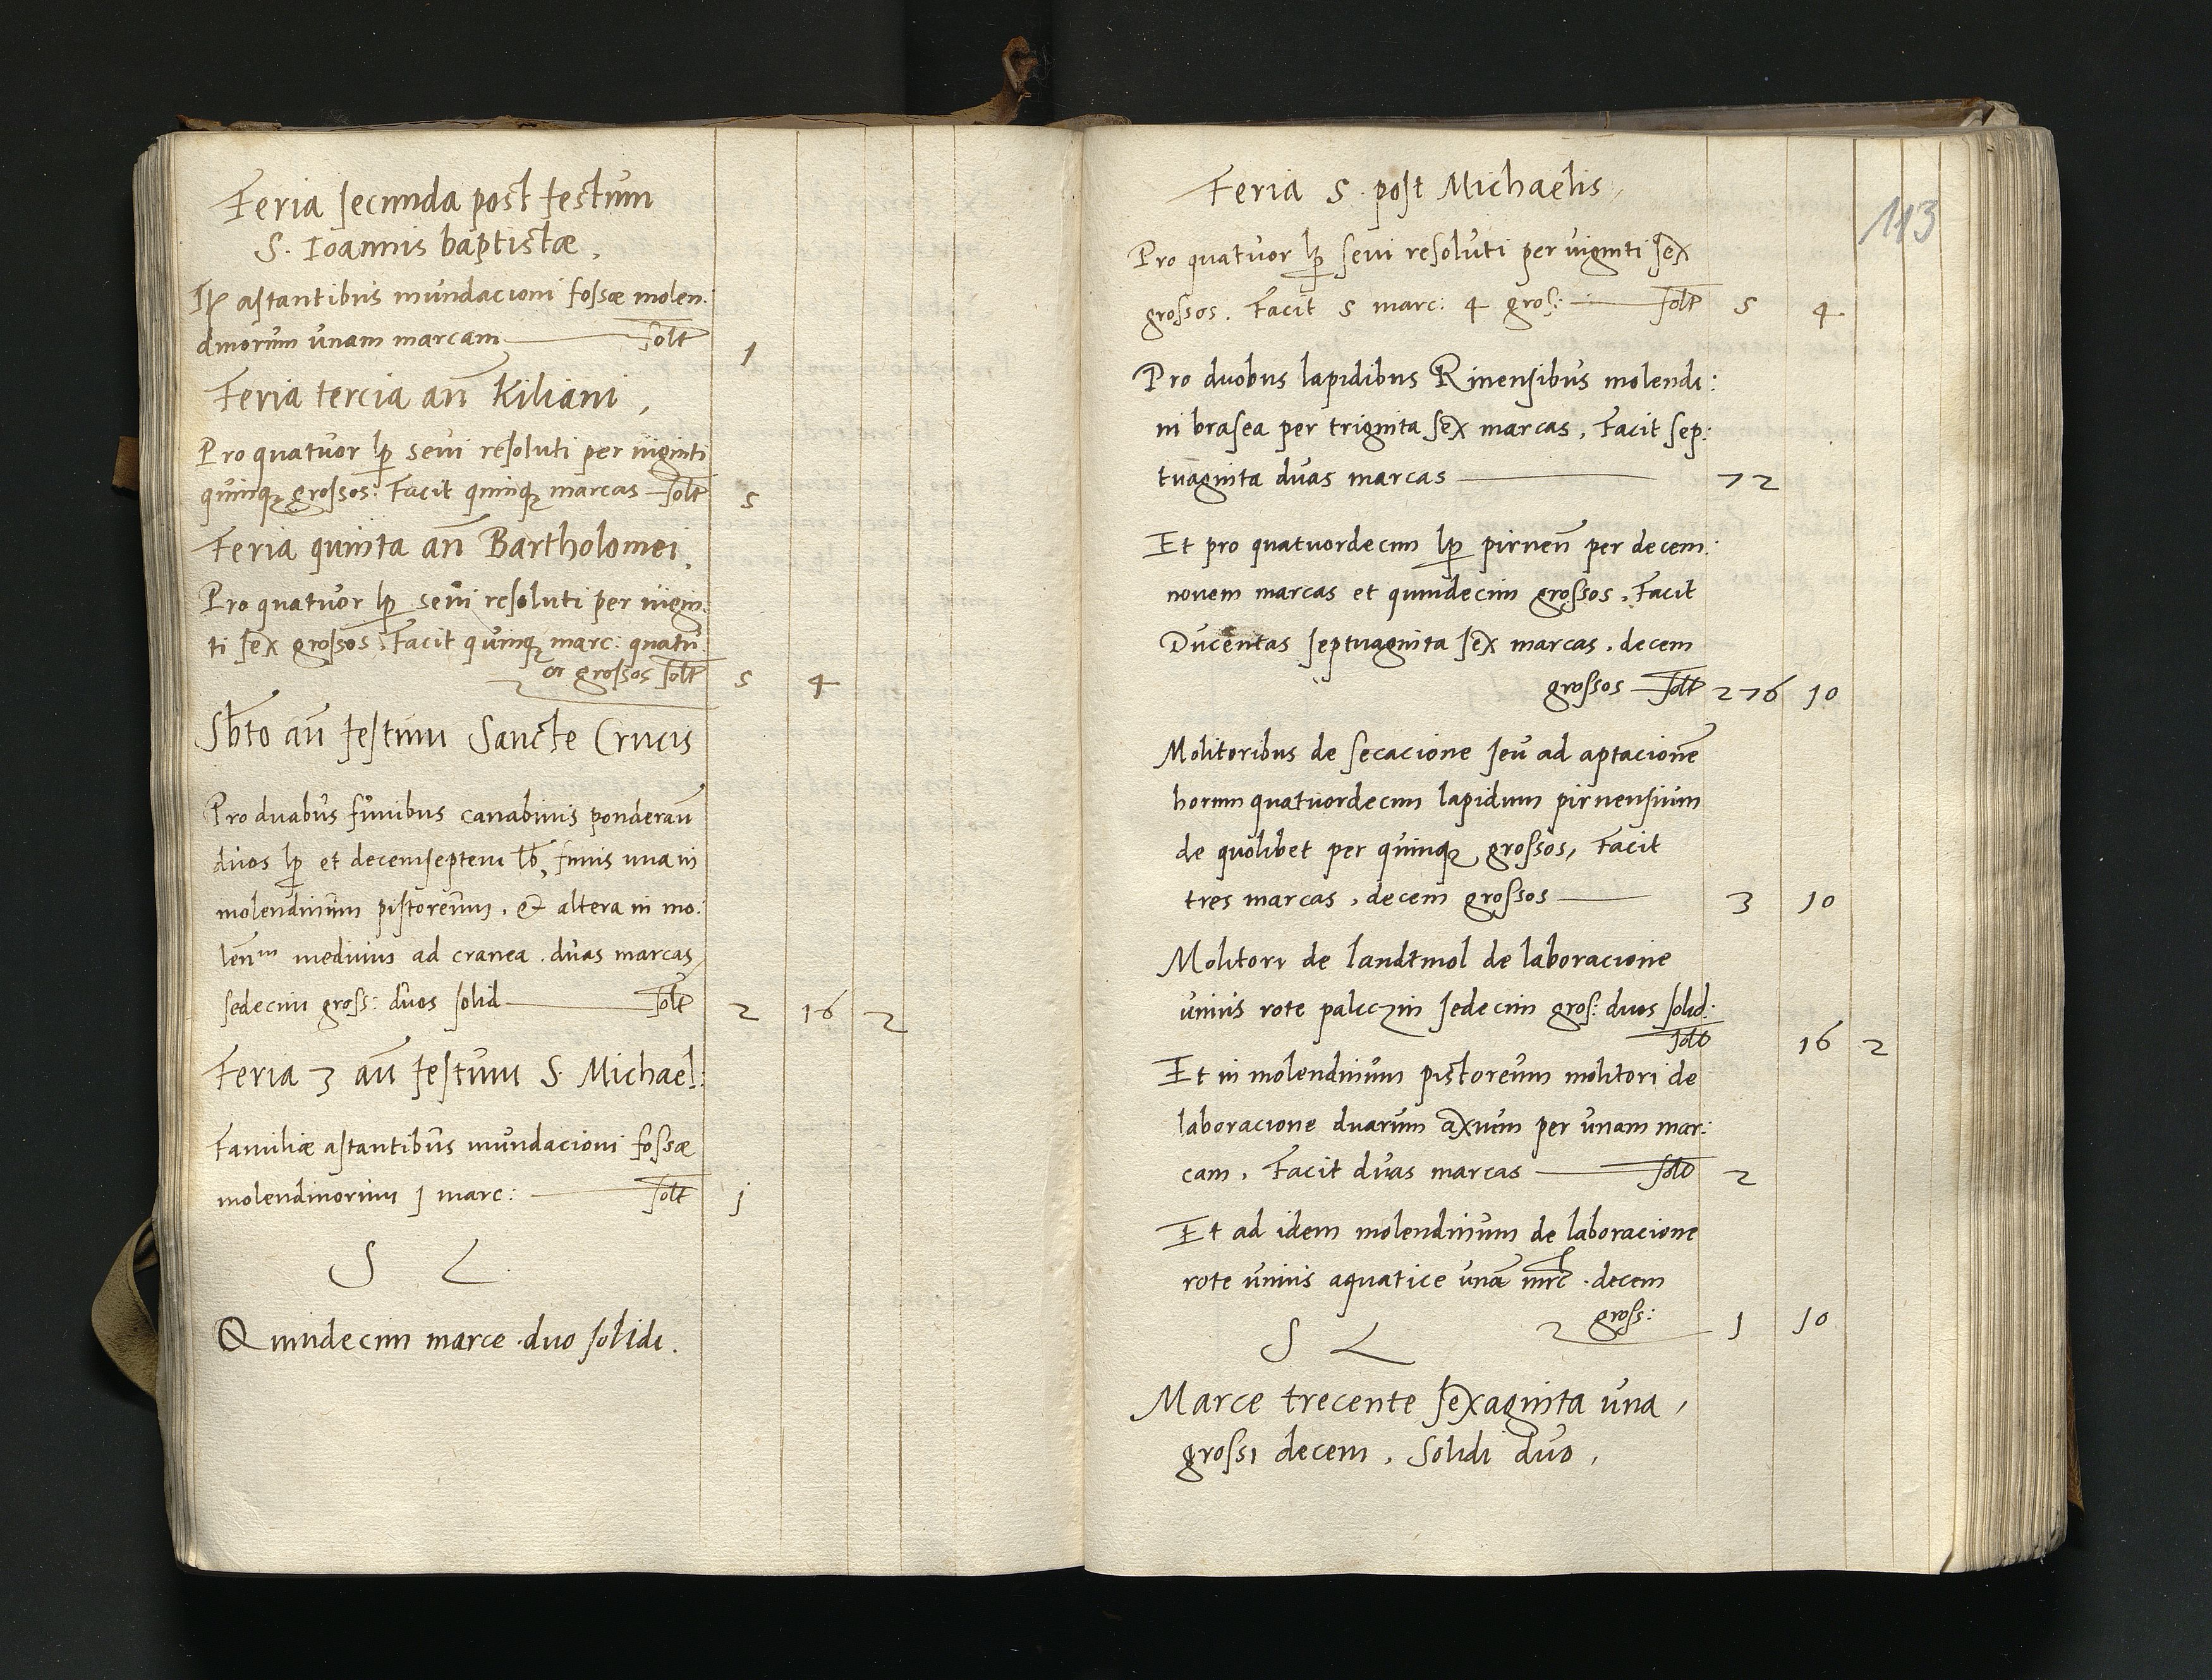 Feria secunda post festum
S. Ioannis baptistæ,
It astantibus mundacioni fossæ molen:
dinorum unam marcam solt 1
Feria tercia an̄ Kiliani,
Pro quatuor lp sevi resoluti per viginti
quinq; grossos: Facit quinq; marcas solt 5
Feria quinta an̄ Bartholomei.
Pro quatuor lp sevi resoluti per vigin:
ti sex grossos. Facit quinq; marc: quatu:
or grossos solt 5 4
Sbto an̄ festum Sancte Crucis
Pro duabus funibus canabinis ponderan̄
duos lp et decemseptem lb, funis una in
molendinum pistoreum. & altera in mo:
len̄um medium ad cranea. duas marcas
sedecim gross: duos solid solt 2 16 2
Feria 3 an̄ festum S. Michael:
Familiæ astantibus mundacioni fossæ
molendinorum 1 marc: solt 1
S L
Quindecim marce. duo solidi.
113
Feria 5. post Michaelis,
Pro quatuor lp sevi resoluti per viginti sex
grossos. Facit 5 marc: 4 gros: solt 5 4
Pro duobus lapidibus Rinensibus molendi:
ni brasea per triginta sex marcas, Facit sep:
tuaginta duas marcas 72
Et pro quatuordecim lp pirnen̄ per decem:
novem marcas et quindecim grossos, Facit
Ducentas septuaginta sex marcas, decem
grossos solt 276 10
Molitoribus de secacione seu ad aptacionē
horum quatuordecim lapidum pirnensium
de quolibet per quinq; grossos, Facit
tres marcas, decem grossos 3 10
Molitori de landtmol de laboracione
unius rote paliczin sedecim gros: duos solid:
solt 16 2
Et in molendinum pistoreum molitori de
laboracione duarum axum per unam mar:
cam, Facit duas marcas solt 2
Et ad idem molendinum de laboracione
rote unius aquatice unā mrc. decem
gross: 1 10
S L
Marce trecente sexaginta una,
grossi decem, Solidi duo,